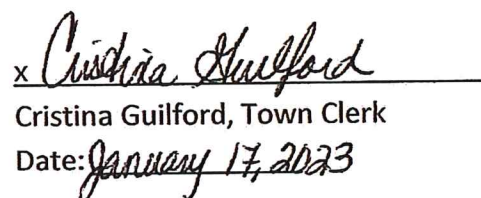 x Cristina Guilford
Cristina Guilford, Town Clerk
Date: January 17, 2023